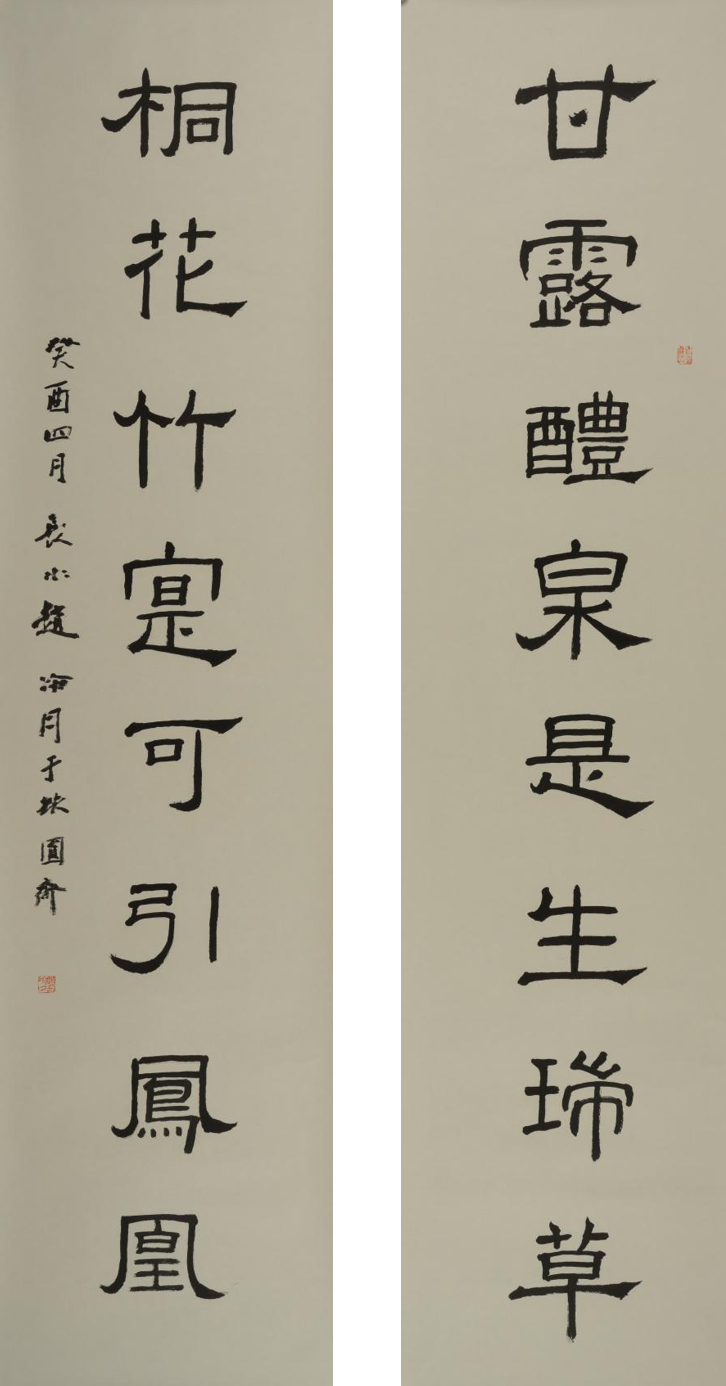 甘露醴泉是生瑞草
桐花竹寔可引鳳凰
癸酉四月 長水趙冷月于缺圓齋